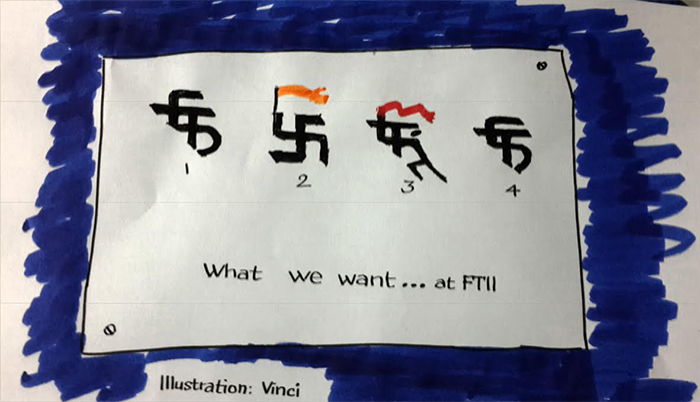 1 2 3 4
What we want... at FTII
Illustration: Vinci